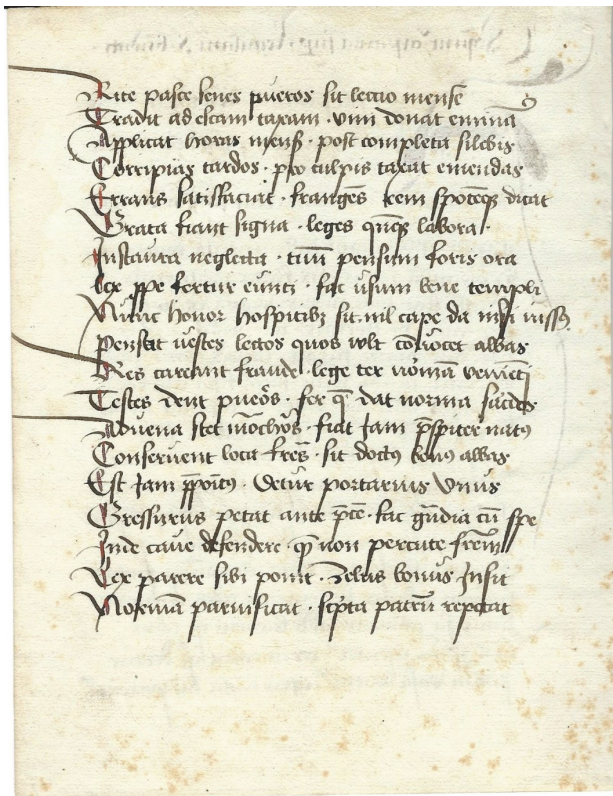 Rite pasce senes pueros sit lectio mense
Tradit ad escam taxam · vim donat emina
Applicat horas mens · post completa silebis
Corripias tardos · pro culpis taxat emendas
Errans satisfaciat · frangens rem sponteqȝ dicat
Grata fiant signa · leges quēqȝ labora ·
Instaura neglecta · tūm pensum foris ora
Lex ꝑpe fertur eunti · fac usum bene templi
Nunc honor hospitibȝ sit · nil cape da nisi iussꝰ
Penset uestes lectos quos vult cōuocet abbas
Res careant fraude · lege ter normā
Testes dent pueros · fer qd dat norma
Aduena stet mōchus · fiat Jam p̄sbiter natꝰ
Conseruent loca fres · sit doctꝰ bonꝰ abbas
Est Jam p̄poitꝰ · Detur portarius Vnus
Gressurus petat ante p̄ce · fac gūdia cū spe
Inde caue defendere · qd non percute frēm
Lex parere sibi ponit · Zelus bonus Insit
Normā paruificat · sc̄pta patrū repetat